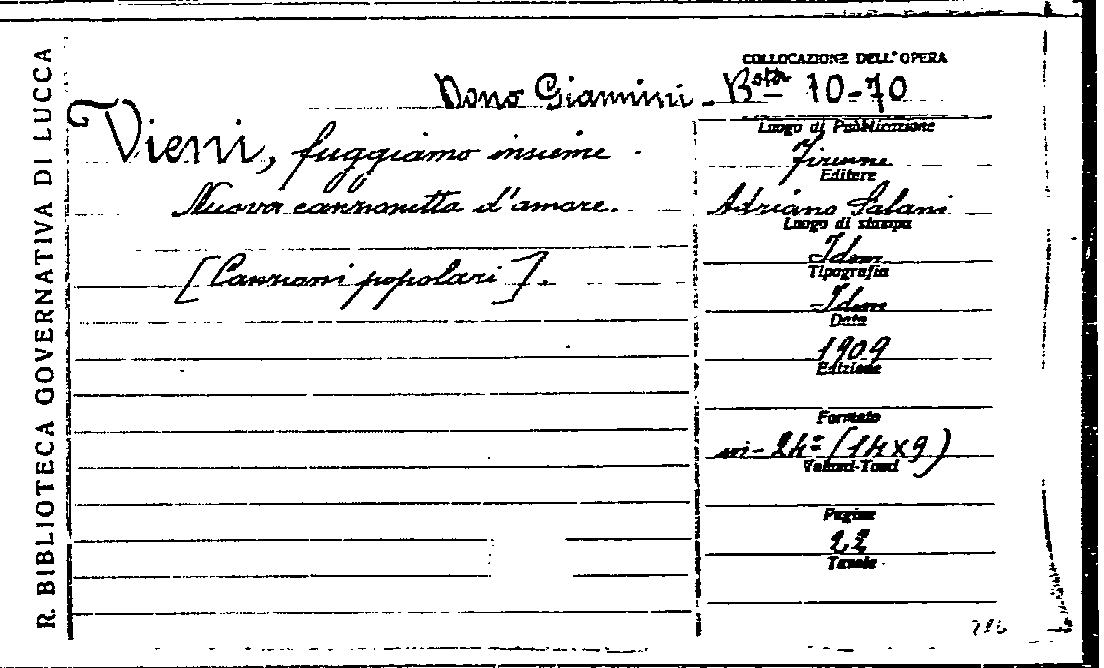 R. BIBLIOTECA GOVERNATIVA DI LUCCA
COLLOCAZIONE DELL'OPERA
Dono Giannini - Bsta 10-70
Vieni, fuggiamo insieme.
Nuova canzonetta d'amore.
[Canzoni popolari].
Luogo di Pubblicazione
Firenze
Editore
Adriano Salani
Luogo di stampa
Idem
Tipografia
Idem
Data
1909
Edizione
Formato
in-24º (14x9)
Volumi-Tomi
Pagine
22
Tavole